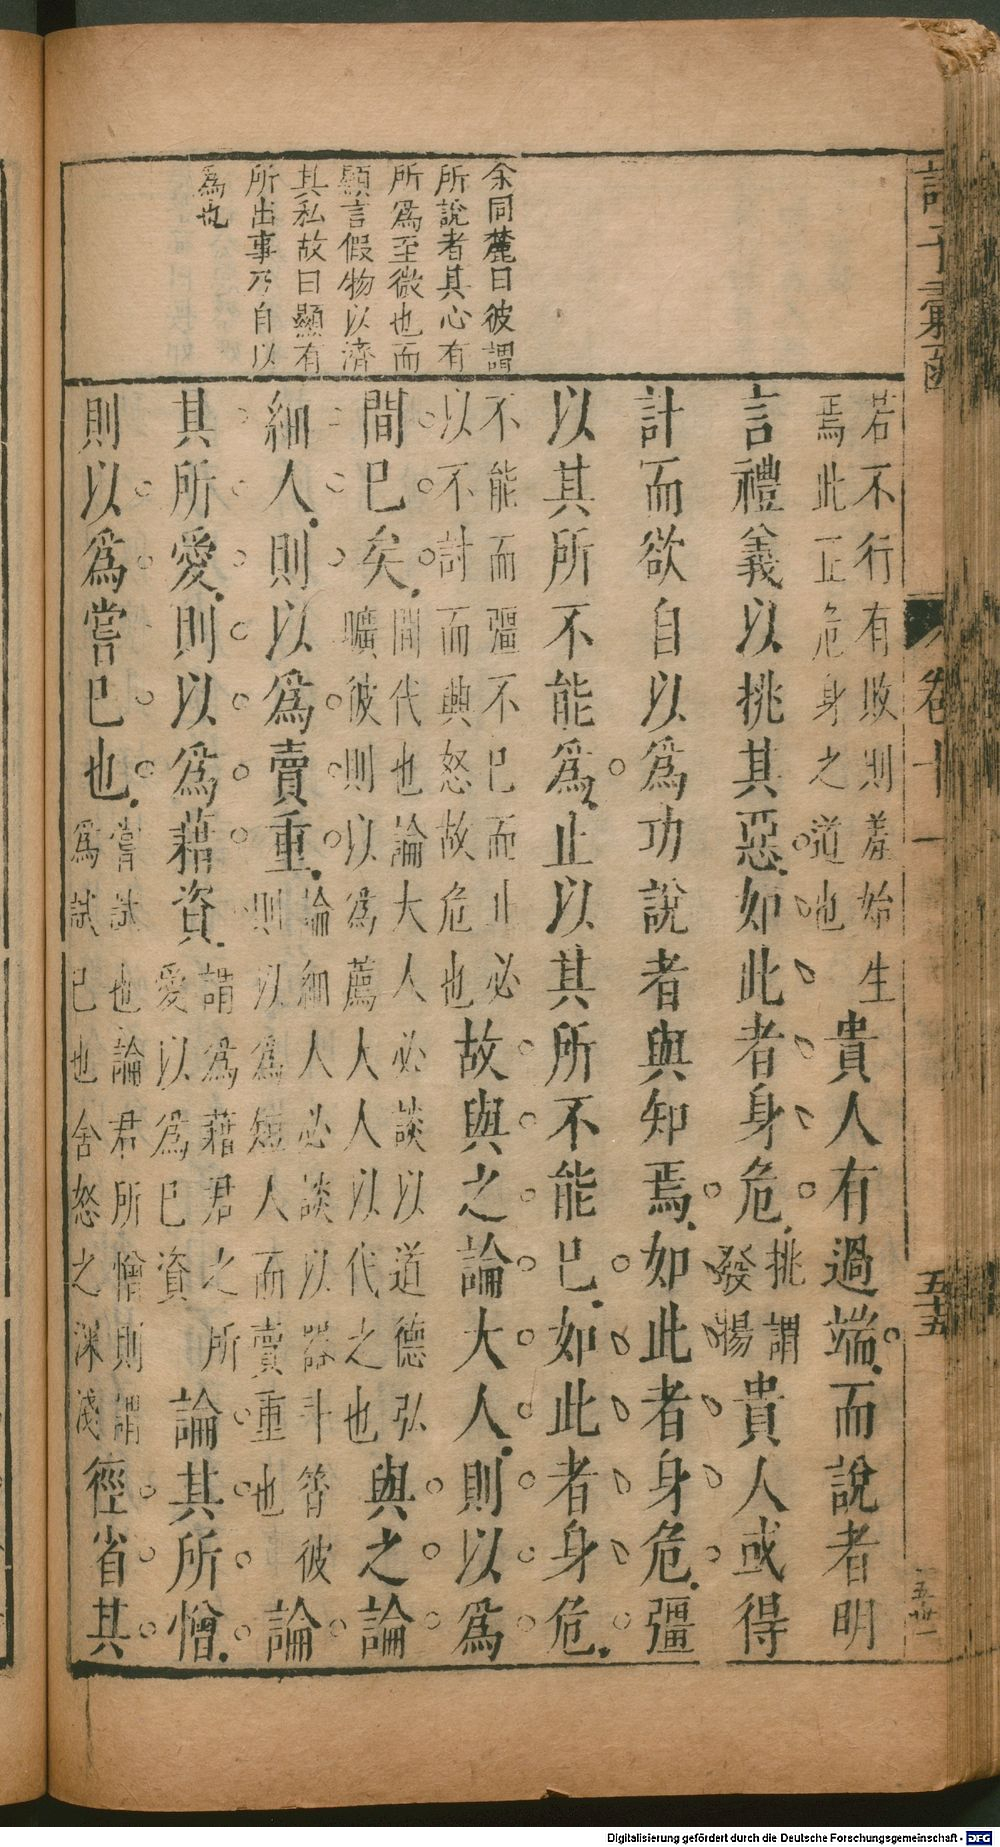 余同麓曰彼謂
所說者其心有
所爲至微也而
顯言假物以濟
其私故曰顯有
所出事乃自以
爲也
諸子彙函
卷十一
五十五
若不行有敗則羞始生
焉此正危身之道也
貴人有過端而說者明
言禮義以挑其惡如此者身危
挑謂
發揚
貴人或得
計而欲自以爲功說者與知焉如此者身危彊
以其所不能爲止以其所不能已如此者身危
不能而彊不已而止必
以不討而興怒故危也
故與之論大人則以爲
間已矣
間代也論大人必談以道德弘
曠彼則以爲薦大人以代之也
與之論
細人則以爲賣重
論細人必談以器斗筲彼
則以爲短人而賣重也
論
其所愛則以爲藉資
謂爲藉君之所
愛以爲已資
論其所憎
則以爲嘗已也
嘗試也論君所憎則謂
爲試已也含怒之深淺
徑省其
Digitalisierung gefördert durch die Deutsche Forschungsgemeinschaft - DFG